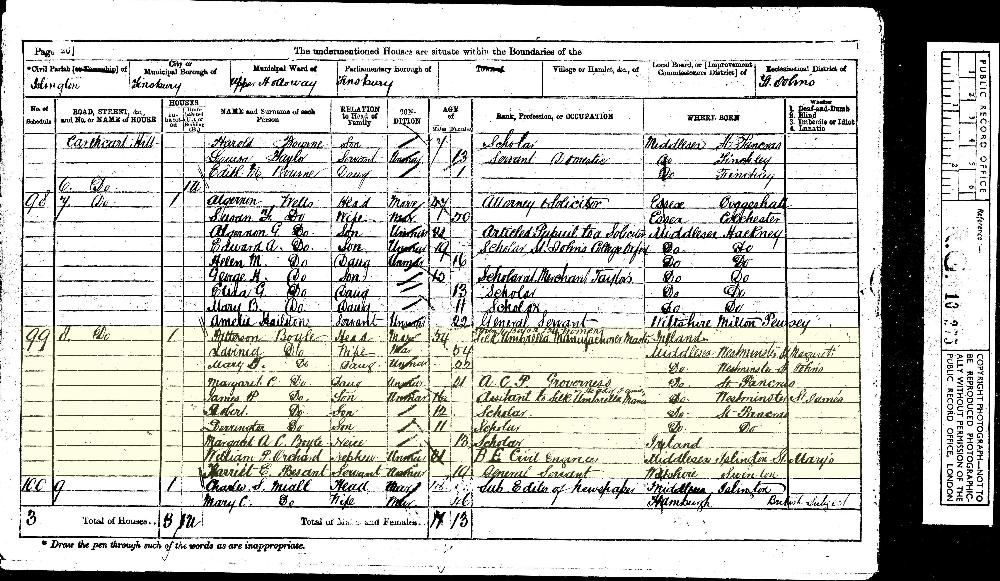 Page 20]
The undermentioned Houses are situate within the Boundaries of the
*Civil Parish [or Township] of
City or
Municipal Borough of
Municipal Ward of
Parliamentary Borough of
Town of
Village or Hamlet, &c., of
Local Board, or [Improvement
Commissioners District] of
Ecclesiastical District of
Islington
Finsbury
Upper Holloway
Finsbury
St. Johns
No. of
Schedule
ROAD, STREET, &c.,
and No. or NAME of HOUSE
HOUSES
NAME and Surname of each
Person
RELATION
to Head of
Family
CON-
DITION
AGE
of
Males
Females
Rank, Profession, or OCCUPATION
WHERE BORN
Whether
1. Deaf-and-Dumb
2. Blind
3. Imbecile or Idiot
4. Lunatic
Cathcart Hill Harold Bourne Son 7 Scholar Middlesex St. Pancras
Louisa Servant Unmar 13 Servant Domestic Do Finchley
Edith M. Bourne Daug 1 Do Finchley
6. Do 1U
98 7 Do 1 Algernon Wells Head Marr 47 Attorney & Solicitor Essex Coggeshall
Susan Do Wife Mar 50 Essex Colchester
Algernon G. Do Son Unmar Articled Pupil to a Solicitor Middlesex Hackney
Edward A. Do Son Unmar 19 Scholar St. Johns College Oxford Do Do
Helen M. Do Daug Unmar 16 Do Do
George H. Do Son Scholar at Merchant Taylors Do Do
Eliza G. Do Daug 13 Scholar Do Do
Mary B. Do Daug 11 Scholar Do Do
Amelia Servant Unmar 22 General Servant Wiltshire Milton Pewsey
99 8 Do 1 Patterson Boyle Head Mar 54 Silk Umbrella Manufacturer Master Ireland
Lavinia Do Wife Mar 54 Middlesex Westminster St Margarets
Mary Do Daug Unmar 22 Do Westminster St Johns
Margaret C. Do Daug Unmar 21 A.C.P. Governess Do St Pancras
James P. Do Son Unmar 16 Assistant to Silk Umbrella Manu Do Westminster St James
Robert Do Son 12 Scholar Do St Pancras
Derrington Do Son 11 Scholar Do Do
Margaret A. C. Boyle Neice 13 Scholar Ireland
William P. Orchard Nephew Unmar 21 B E Civil Engineer Middlesex Islington St. Marys
Harriett E. Besant Servant Unmar 19 General Servant
100 9 1 Charles S. Miall Head Marr Sub Editor of Newspaper Middlesex Islington
Mary C. Do Wife Mar 46 Hamburgh British Subject
3 Total of Houses... 3 1U Total of Males and Females... 14 13
* Draw the pen through such of the words as are inappropriate.
PUBLIC RECORD OFFICE
Reference :-
COPYRIGHT PHOTOGRAPH-NOT TO
BE REPRODUCED PHOTOGRAPHIC-
ALLY WITHOUT PERMISSION OF THE
PUBLIC RECORD OFFICE, LONDON